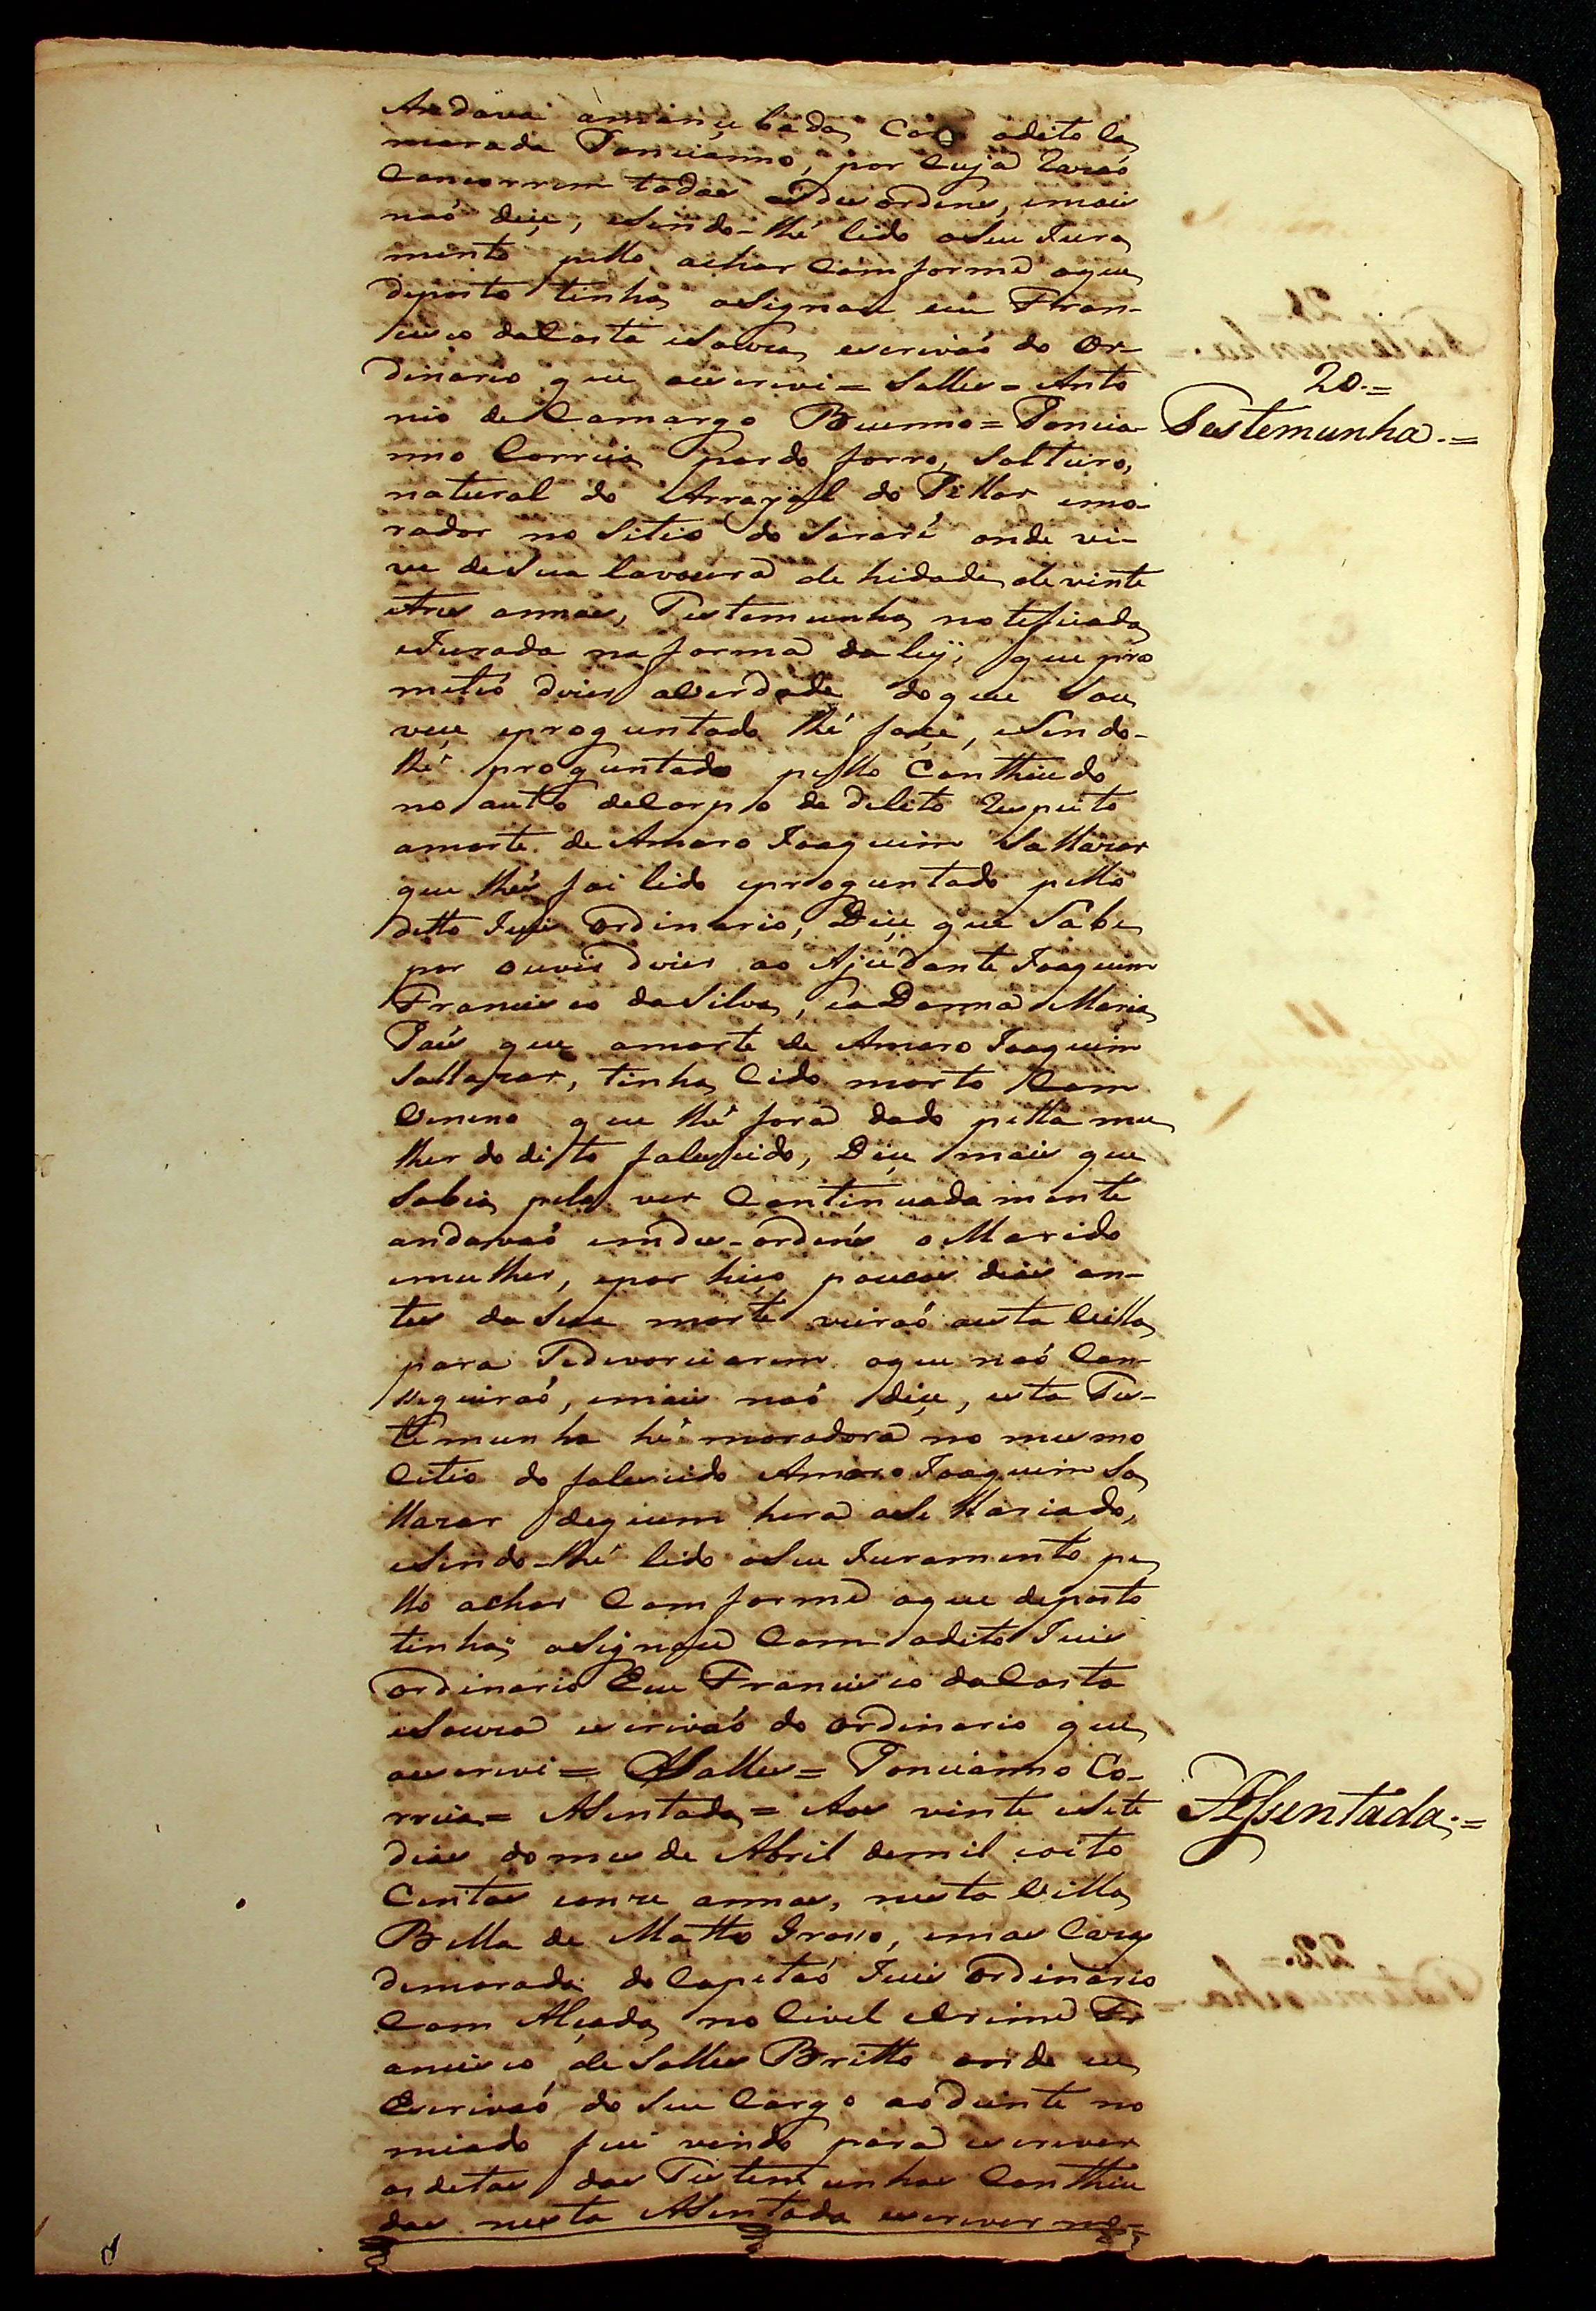 Andava amançebada Com odito Ca
marada Poncianno, por cuja Razaõ
Concorrem todas as des ordens, emais
naõ diçe, eSendo-lhé lido oSeu Jura
mento pello achar Comforme oque
deposto tinha aSignou eu Fran-
cisco daCosta eSouza escrivaõ do Or-
dinario que oescrevi = Salles = Anto
nio de Camargo Buenno = Poncia-
20.=
Testemunha.=
nno Correia pardo forro, Solteiro,
natural do Arrayal do Pillar emo-
rador no Sitio do Sararé onde vi-
ve deSua lavoura de hidade de vinte
etres annos, Testemunha noteficada
eJurada na forma da ley, que pro
meteo dizer averdade doque Sou
veçe eproguntado lhé foçe, eSendo-
lhé proguntado pello Conthiudo
no auto deCorpo de delito Respeito
amorte de Amaro Joaquim Sallazar
que lhé foi lido eproguntado pello
ditto Juis Ordinario, Diçe que Sabe
por ouvir dizer ao Ajudante Joaquim
Francisco daSilva, eaDonna Maria
Páes que amorte de Amaro Joaquim
Sallazar, tinha Cido morto Com
Veneno que lhé fora dado pella mu
lher do dito falescido, Diçe mais que
Sabia pelo ver Continuadamente
andavaõ emdes-ordens o Marido
emulher, epor hiço poucos dias an-
tes da Sua morte vieraõ aesta Villa
para Sedevorciarem oque naõ Con-
seguiraõ, emais naõ diçe, esta Tes-
temunha hé moradora no mesmo
Citio do falescido Amaro Joaquim Sa
llazar dequem hera aSellariado,
eSendo-lhé lido oSeu Juramento pe
llo achar Comforme oque deposto
tinha, aSignou Com odito Juis
Ordinario Eu Francisco daCosta
eSouza escrivaõ do ordinario que
oescrevi = Salles = Poncianno Co-
rreia = ASentada = Aos vinte eSete
Assentada.=
dias domes de Abril demil eoito
Centos eonze annos, nesta Villa
Bella de Matto Groso, emas Cazas
demorada do Capitaõ Juis Ordinario
Com Alçada no Civel eCrime Fr
ancisco de Salles Britto onde eu
Escrivaõ do Seu Cargo aodiante no
miado fui vindo para escrever
os detos das Testemunhas Conthiu
das nesta ASentada escrever me-